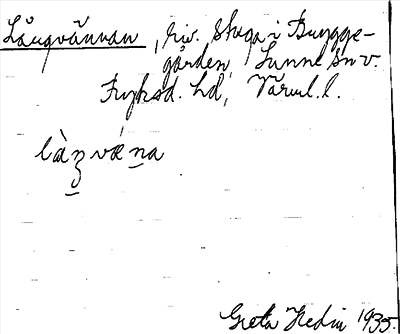 Långvännan, riv. stuga i Brygge-
gården, Sunne sn v.
Fryksd. hd, Värml. l.
Greta Hedin 1935.